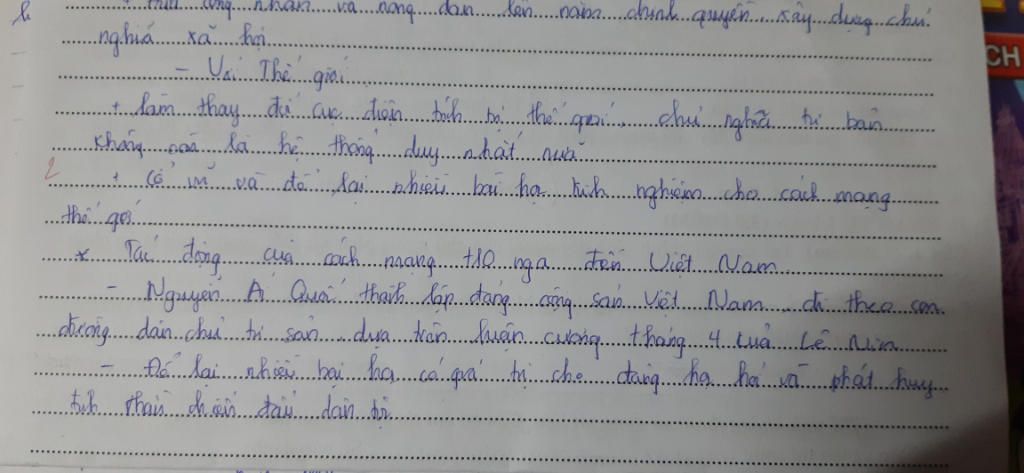 + Đưa công nhân và nông dân lên nắm chính quyền, xây dựng chủ
nghĩa xã hội
- Với Thế giới
+ làm thay đổi cục diện tích trị thế giới, chủ nghĩa tư bản
không còn là hệ thống duy nhất nữa
2
+ Cổ vũ và để lại nhiều bài học kinh nghiệm cho cách mạng
thế giới
* Tác động của cách mạng t10 nga đến Việt Nam
- Nguyễn Ái Quốc thành lập đảng cộng sản Việt Nam, đi theo con
đường dân chủ tư sản dựa trên luận cương tháng 4 của Lê Nin
- Để lại nhiều bài học có giá trị cho đảng học hỏi và phát huy
tinh thần chiến đấu dân tộc
CH